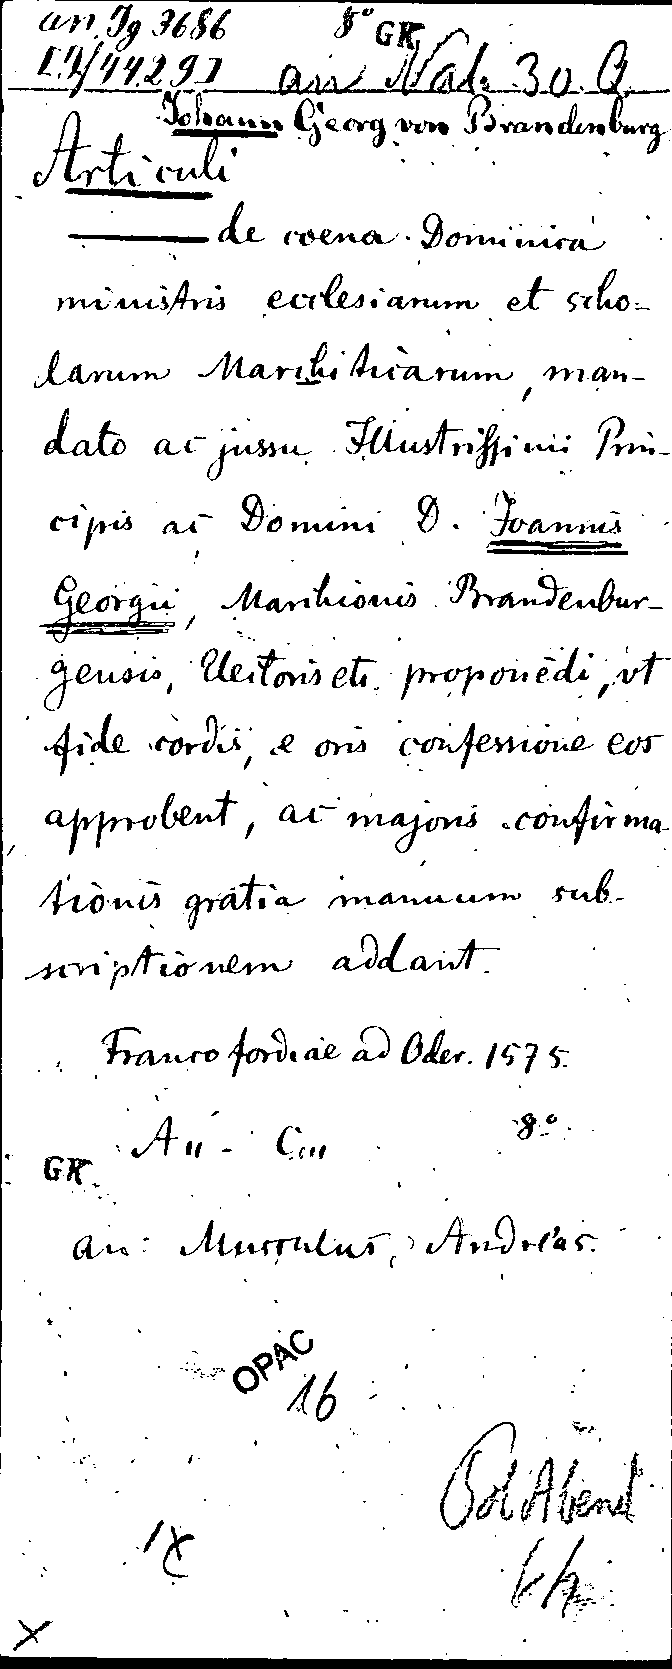 an Jg 3686 8° GK
an Nat. 30. Q
Johann Georg von Brandenburg
Articuli
de coena Dominica
ministris ecclesiarum et scho-
larum Marchiticarum, man-
dato ac jussu Illustrissimi Prin-
cipis ac Domini D. Joannis
Georgii, Marchionis Brandenbur-
gensis, Electoris etc. proponēdi, vt
fide cordis, e oris confessione eos
approbent, ac majoris confirma
tionis gratia manuum sub-
scriptionem addant.
Francofordiae ad Oder. 1575.
8°
GK
an: Musculus, Andreas.
OPAC
16
Abend
X